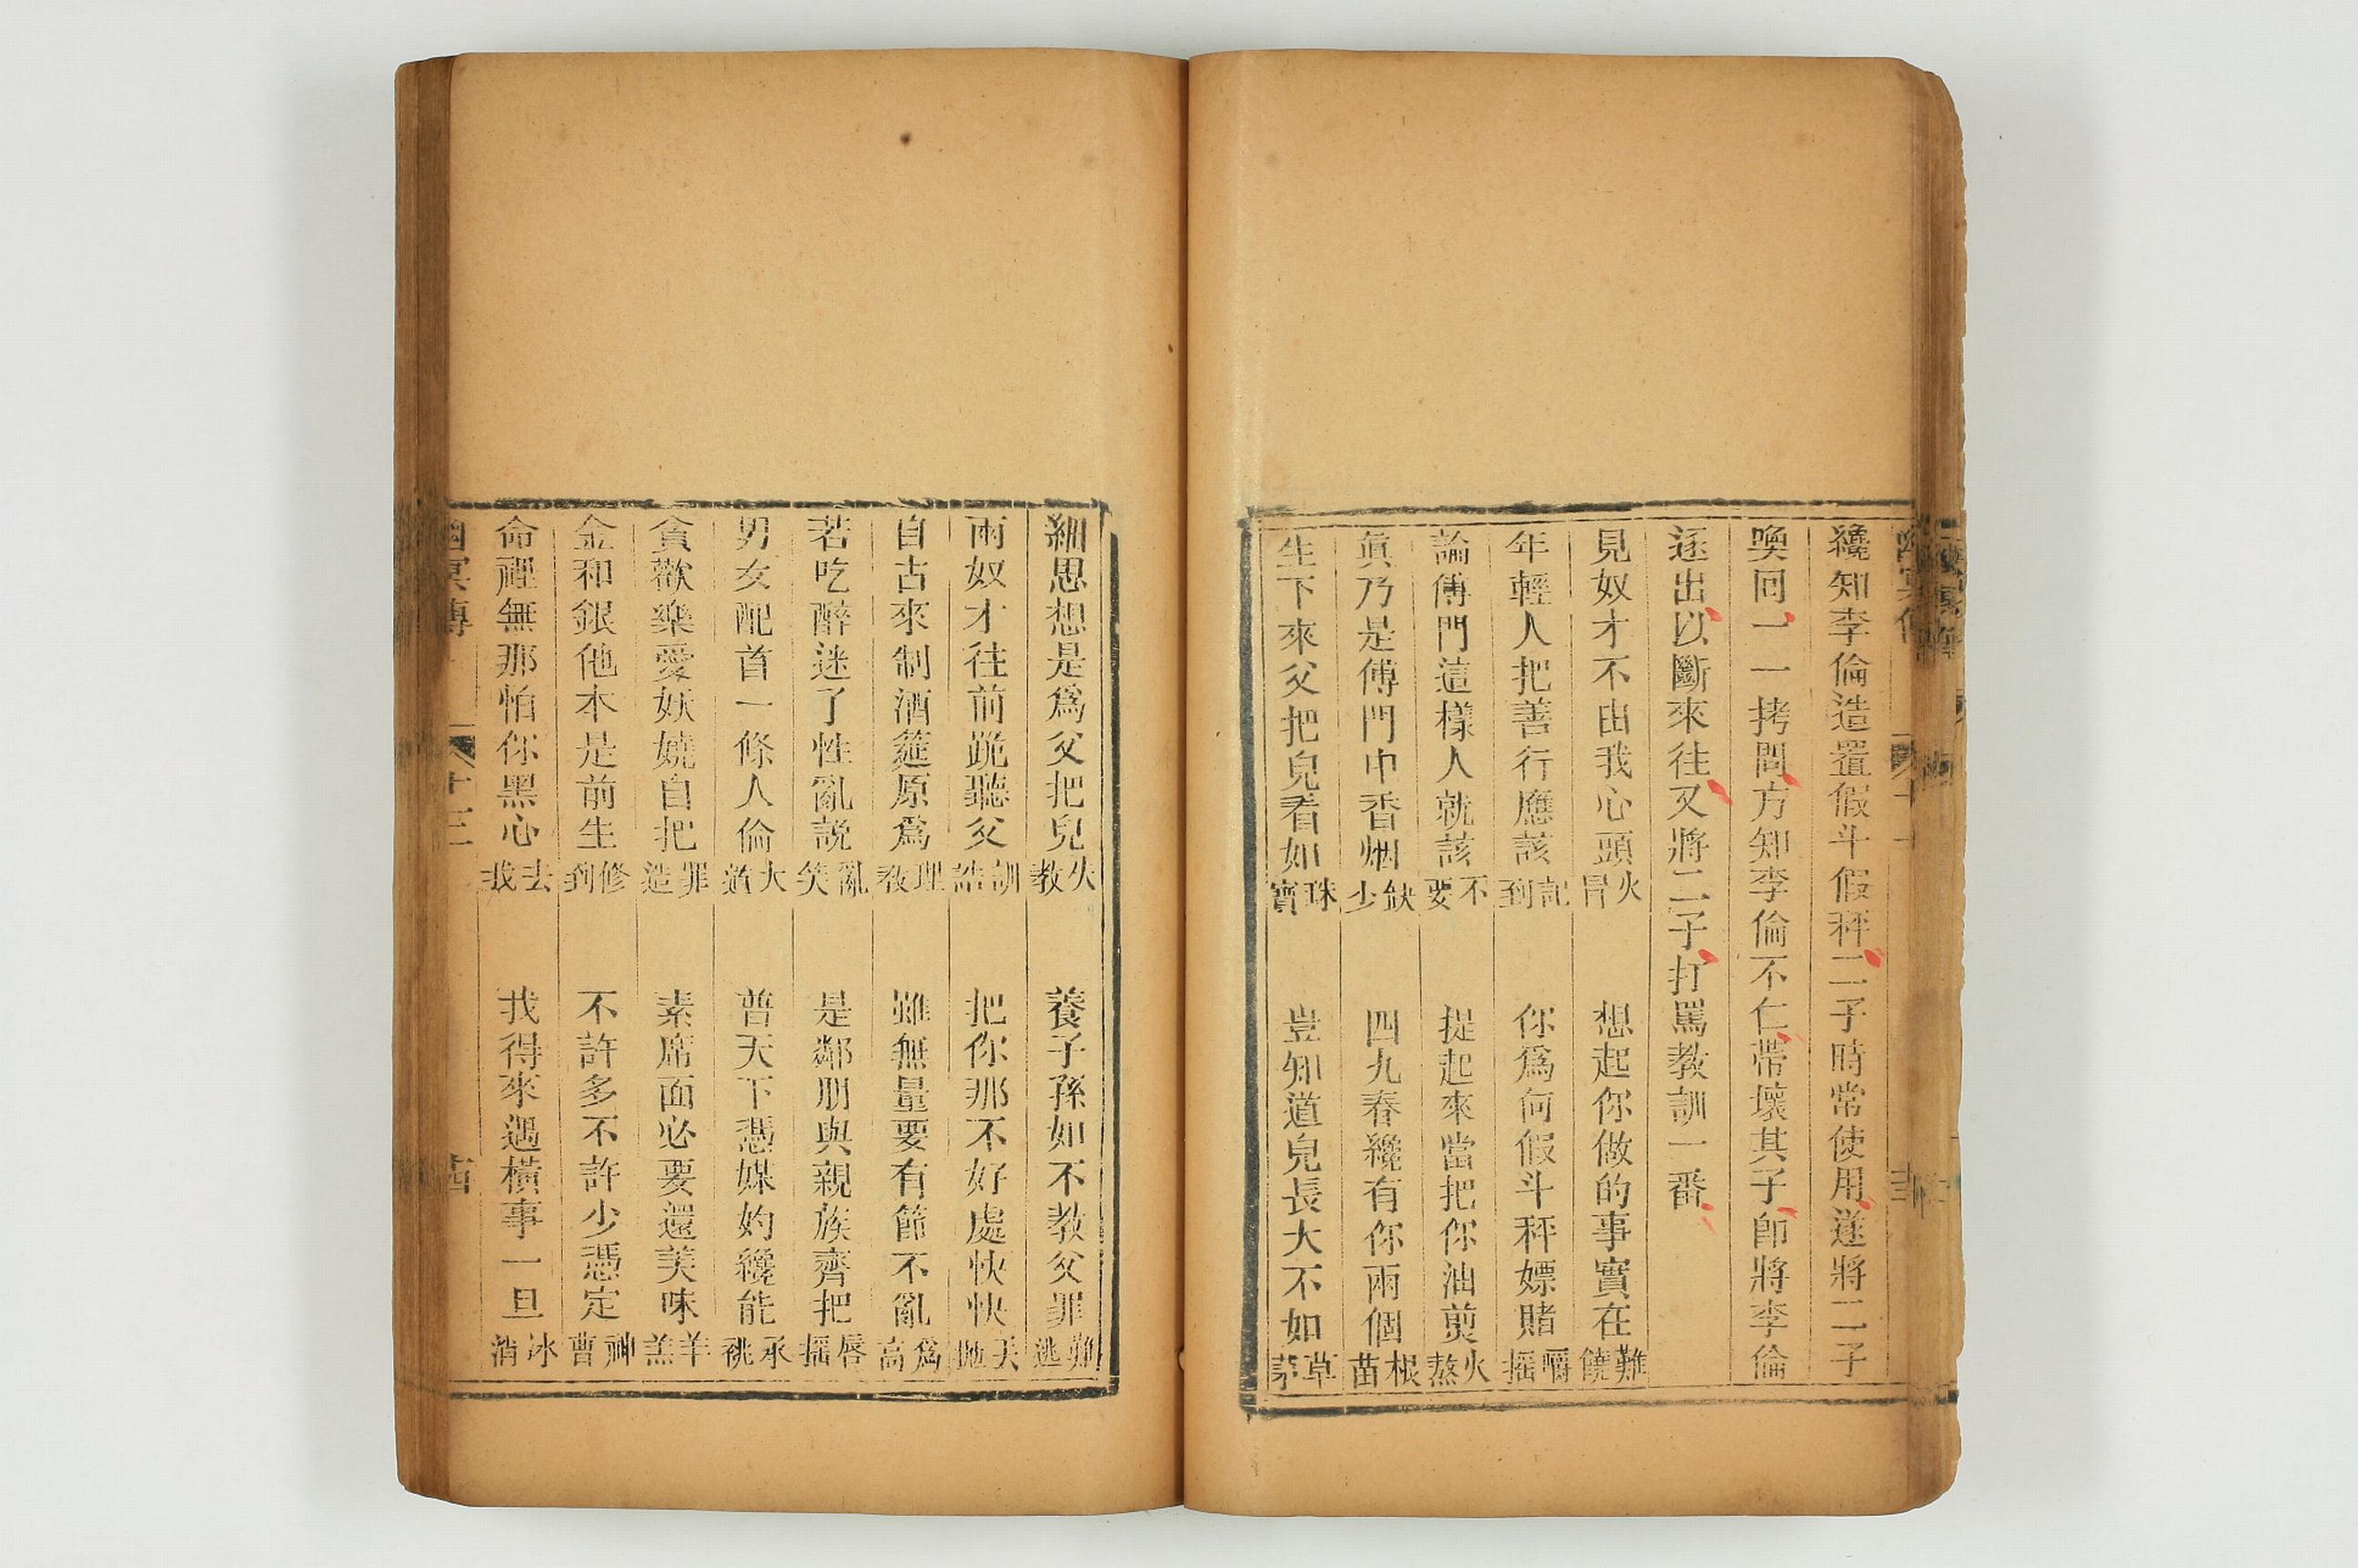 纔知李倫造置假斗假秤二子時常使用遂將二子
喚回一一拷問方知李倫不仁帶壞其子卽將李倫
逐出以斷來往又將二子打罵教訓一番
見奴才不由我心頭火冒 想起你做的事實在難饒
年輕人把善行應該記到 你爲何假斗秤嫖賭嚼搖
論傅門這樣人就該不要 提起來當把你油煎火熬
眞乃是傅門中香烟缺少 四九春纔有你兩個根苗
生下來父把兒看如珠寶 豈知道兒長大不如草茅
細思想是爲父把兒失教 養子孫如不教父罪難逃
兩奴才往前跪聽父訓誥 把你那不好處快快丟拋
自古來制酒筵原爲理教 雖無量要有節不亂爲高
若吃醉迷了性亂說亂笑 是鄰朋與親族齊把唇搖
男女配首一條人倫大道 普天下憑媒妁纔能承祧
貪歡樂愛妖嬈自把罪造 素席面必要還美味羊羔
金和銀他本是前生修到 不許多不許少憑定神曹
命裡無那怕你黑心去找 我得來遇橫事一旦冰消
幽冥傳 十三 十四